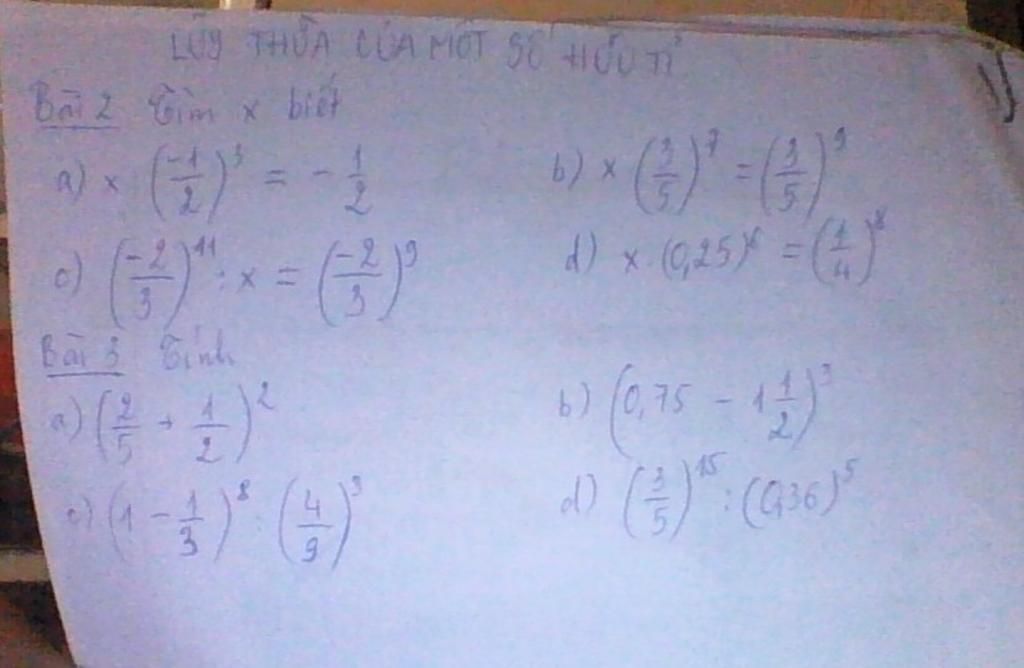 LŨY THỪA CỦA MỘT SỐ HỮU TỈ
Bài 2 Tìm x biết
a) x : (-1/2)³ = - 1/2
b) x (3/5)⁷ = (3/5)⁹
c) (-2/3)¹¹ : x = (-2/3)⁹
d) x . (0,25)⁶ = (1/4)⁸
Bài 3 Tính
a) (2/5 + 1/2)²
b) (0,75 - 1 1/2)³
c) (1 - 1/3)⁸ : (4/9)³
d) (3/5)¹⁵ : (0,36)⁵